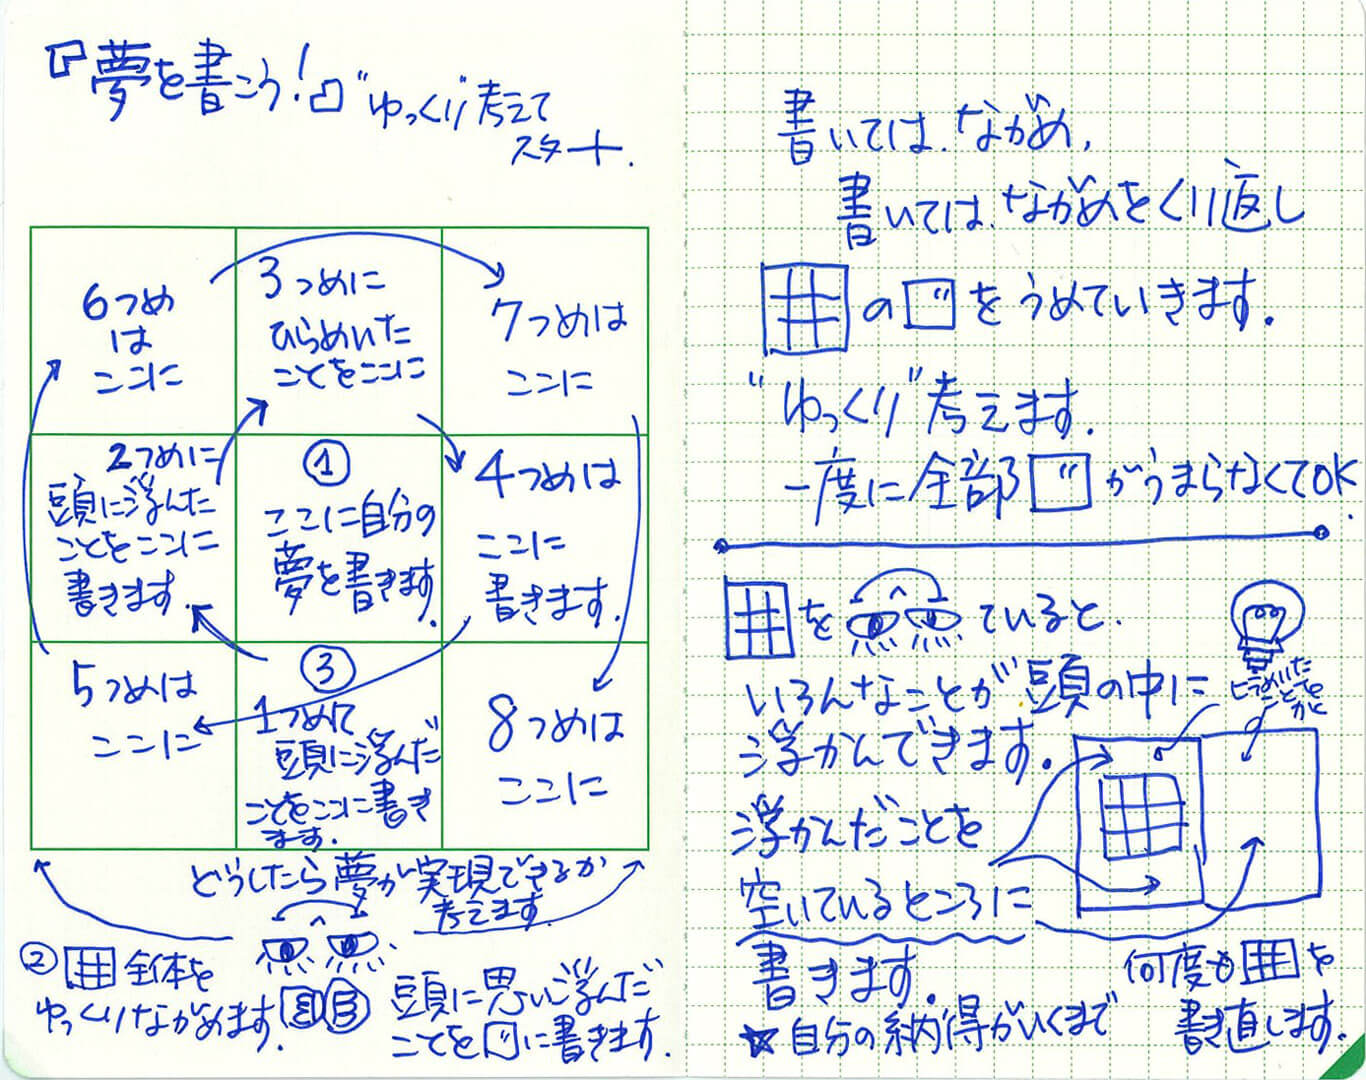 『夢を書こう!』"ゆっくり"考えて
スタート.
6つめ
は
ここに
3つめに
ひらめいた
ことをここに
7つめは
ここに
2つめに
頭に浮んだ
ことをここに
書きます.
①
ここに自分の
夢を書きます.
4つめは
ここに
書きます.
5つめは
ここに
③
1つめに
頭に浮んだ
ことをここに書き
ます.
8つめは
ここに
どうしたら夢が実現できるか
考えます
② 全体を
ゆっくりながめます.
頭に思い浮んだ
ことを に書きます.
書いては、ながめ,
書いては、ながめをくり返し
の をうめていきます.
"ゆっくり"考えます.
一度に全部 がうまらなくてOK.
を ていると、
いろんなことが頭の中に
浮かんできます.
ヒラめいた
ことを
浮かんだことを
空いているところに
書きます.
何度も を
書き直します.
☆自分の納得がいくまで